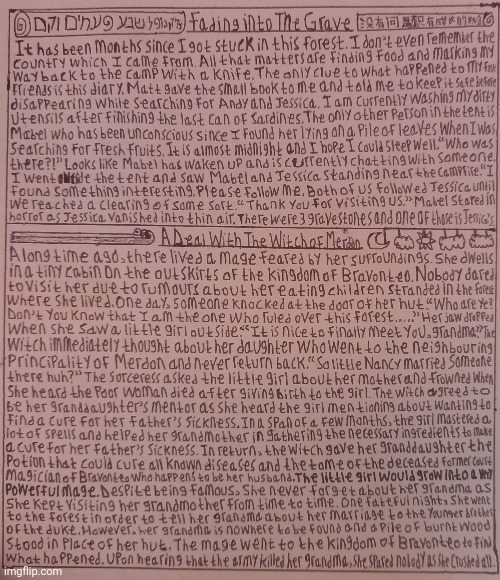 Fading into The Grave
It has been months since I got stuck in this forest. I don't even remember the
country which I came from. All that matters are finding food and marking my
way back to the camp with a knife. The only clue to what happened to my four
friends is this diary. Matt gave the small book to me and told me to keep it safe before
disappearing while searching for Andy and Jessica. I am currently washing my dirty
utensils after finishing the last can of sardines. The only other person in the tent is
Mabel who has been unconscious since I found her lying on a pile of leaves when I was
searching for fresh fruits. It is almost midnight and I hope I could sleep well. "Who was
there?!" Looks like Mabel has waken up and is currently chatting with someone.
I went outside the tent and saw Mabel and Jessica standing near the campfire. "I
found something interesting. Please follow me. Both of us followed Jessica until
we reached a clearing of some sort. "Thank you for visiting us." Mabel stared in
horror as Jessica vanished into thin air. There were 3 gravestones and one of those is Jessica's.
A Deal With The Witch of Merdon
A long time ago, there lived a mage feared by her surroundings. She dwells
in a tiny cabin on the outskirts of the kingdom of Bravonteo. Nobody dared
to visit her due to rumours about her eating children stranded in the forest
where she lived. One day, someone knocked at the door of her hut. "Who are ye?
Don't you know that I am the one who ruled over this forest....." Her jaw dropped
when she saw a little girl outside. "It is nice to finally meet you, grandma." The
witch immediately thought about her daughter who went to the neighbouring
principality of Merdon and never return back. "So little Nancy married someone
there huh?" The sorceress asked the little girl about her mother and frowned when
she heard the poor woman died after giving birth to the girl. The witch agreed to
be her granddaughter's mentor as she heard the girl mentioning about wanting to
find a cure for her father's sickness. In a span of a few months, the girl mastered a
lot of spells and helped her grandmother in gathering the necessary ingredients to make
a cure for her father's sickness. In return, the witch gave her granddaughter the
potion that could cure all known diseases and the tome of the deceased former court
magician of Bravonteo who happens to be her husband. The little girl would grow into a very
powerful mage. Despite being famous, she never forget about her grandma as
she kept visiting her grandmother from time to time. One fateful night, she went
to the forest in order to tell her grandma about her marriage to the younger brother
of the duke. However, her grandma is nowhere to be found and a pile of burnt wood
stood in place of her hut. The mage went to the kingdom of Bravonteo to find
what happened. Upon hearing that the army killed her grandma, she spared nobody as she crushed all.
imgflip.com